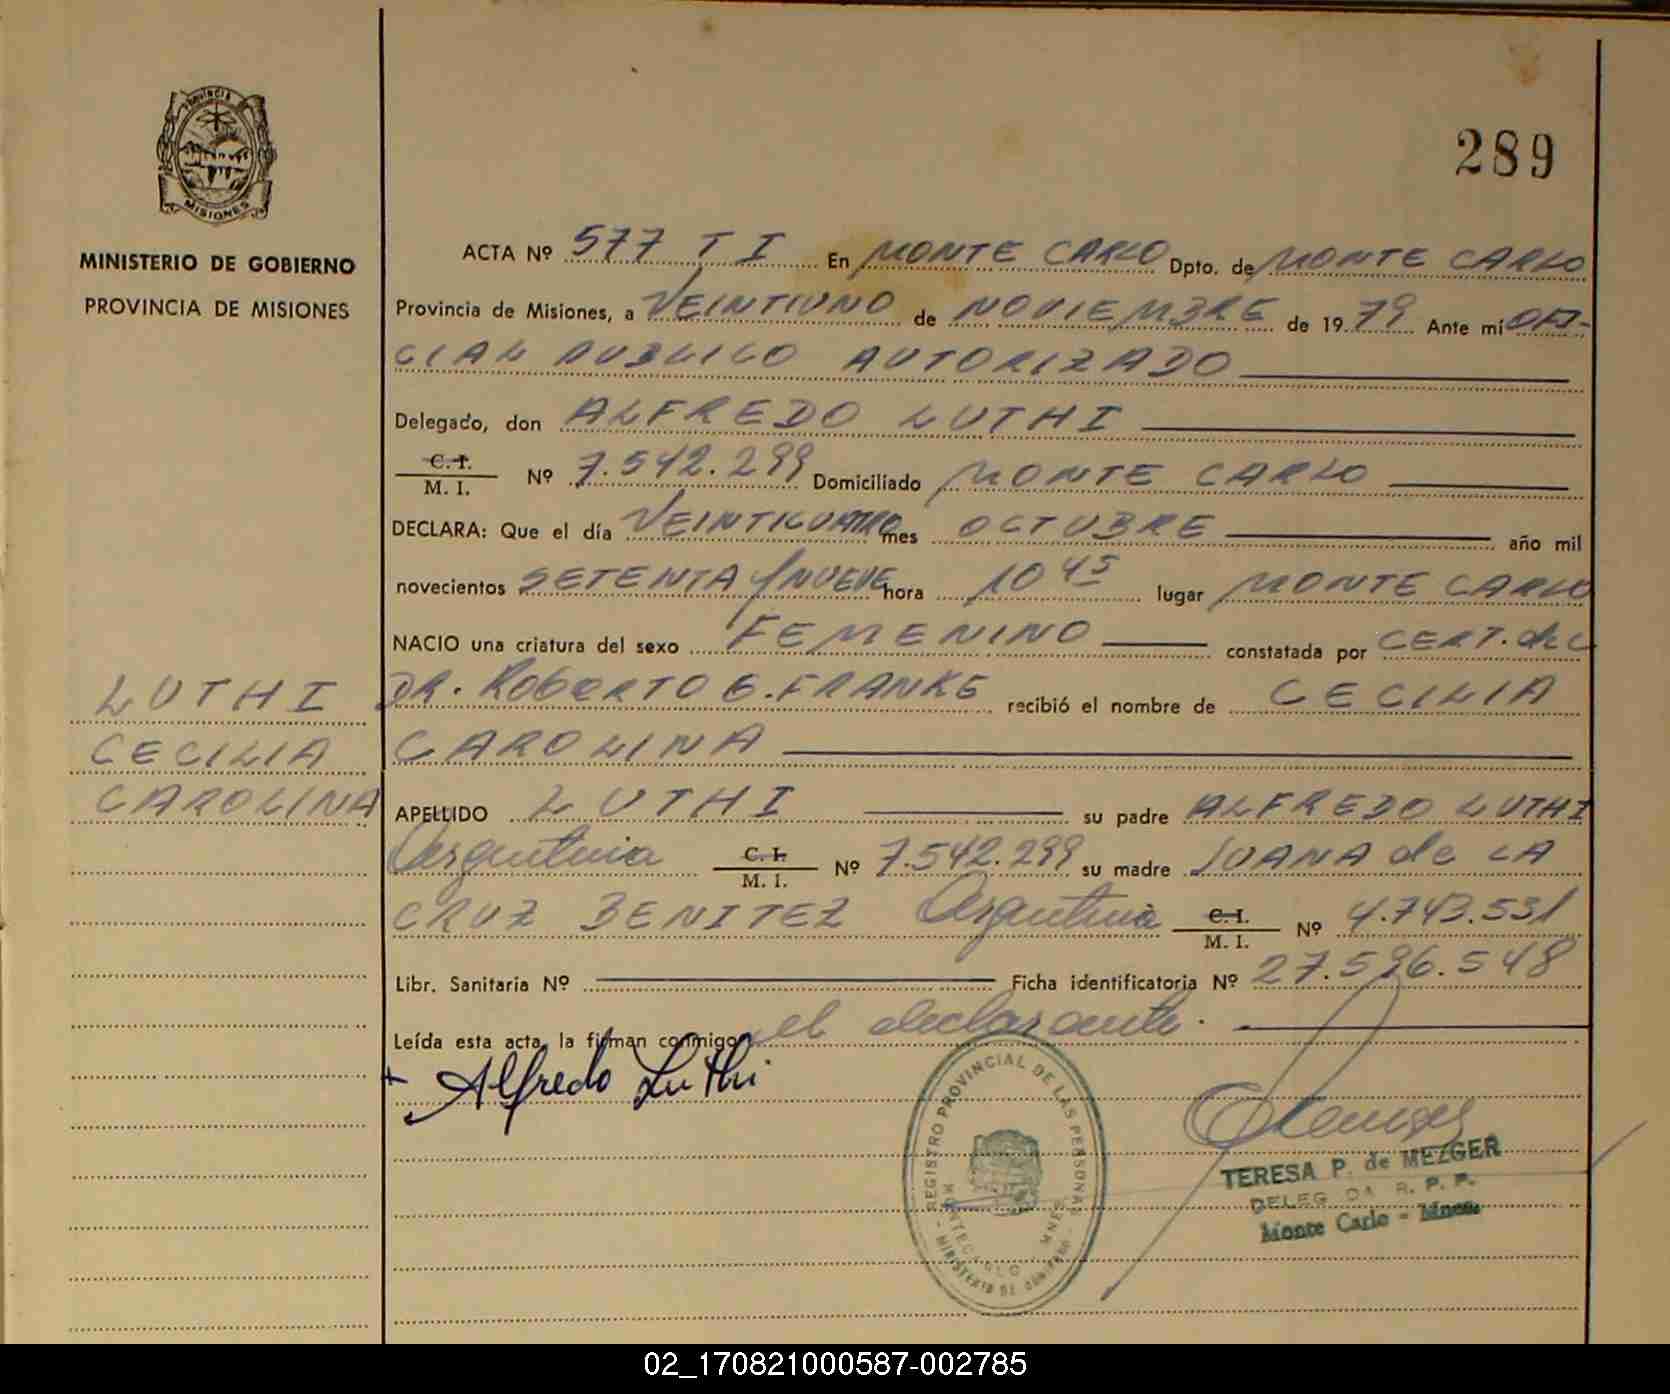 289
PROVINCIA
MISIONES
MINISTERIO DE GOBIERNO
PROVINCIA DE MISIONES
ACTA Nº 577 T I En MONTE CARLO Dpto. de MONTE CARLO
Provincia de Misiones, a VEINTIUNO de NOVIEMBRE de 19 79 Ante mí OFI-
CIAL PUBLICO AUTORIZADO
Delegado, don ALFREDO LUTHI
C. I. / M. I. Nº 7.542.299 Domiciliado MONTE CARLO
DECLARA: Que el día VEINTICUATRO mes OCTUBRE año mil
novecientos SETENTA y NUEVE hora 10 45 lugar MONTE CARLO
NACIO una criatura del sexo FEMENINO constatada por CERT. del
DR. ROBERTO E. FRANKE recibió el nombre de CECILIA
CAROLINA
LUTHI
CECILIA
CAROLINA
APELLIDO LUTHI su padre ALFREDO LUTHI
Argentina C. I. / M. I. Nº 7.542.299 su madre JUANA de LA
CRUZ BENITEZ Argentina C. I. / M. I. Nº 4.743.531
Libr. Sanitaria Nº Ficha identificatoria Nº 27.596.548
Leída esta acta, la firman conmigo el declarante.
Alfredo Luthi
REGISTRO PROVINCIAL DE LAS PERSONAS
MONTECARLO MNES
MINISTERIO DE GOBIERNO
TERESA P. de MEZGER
DELEGADA R. P. P.
Monte Carlo - Mnes.
02_170821000587-002785